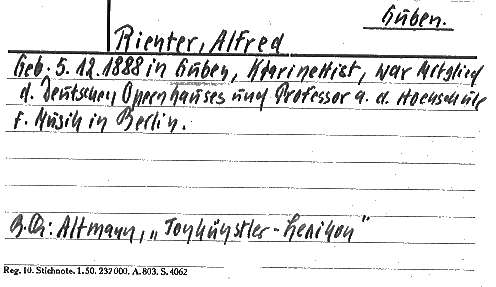 Guben.
Richter, Alfred
Geb. 5.12.1888 in Guben, Klarinettist, war Mitglied
d. Deutschen Opernhauses und Professor a. d. Hochschule
f. Musik in Berlin.
B.Qu: Altmann, „Tonkünstler-Lexikon"
Reg. 10. Stichnote. 1.50. 232000. A. 803. S. 4062